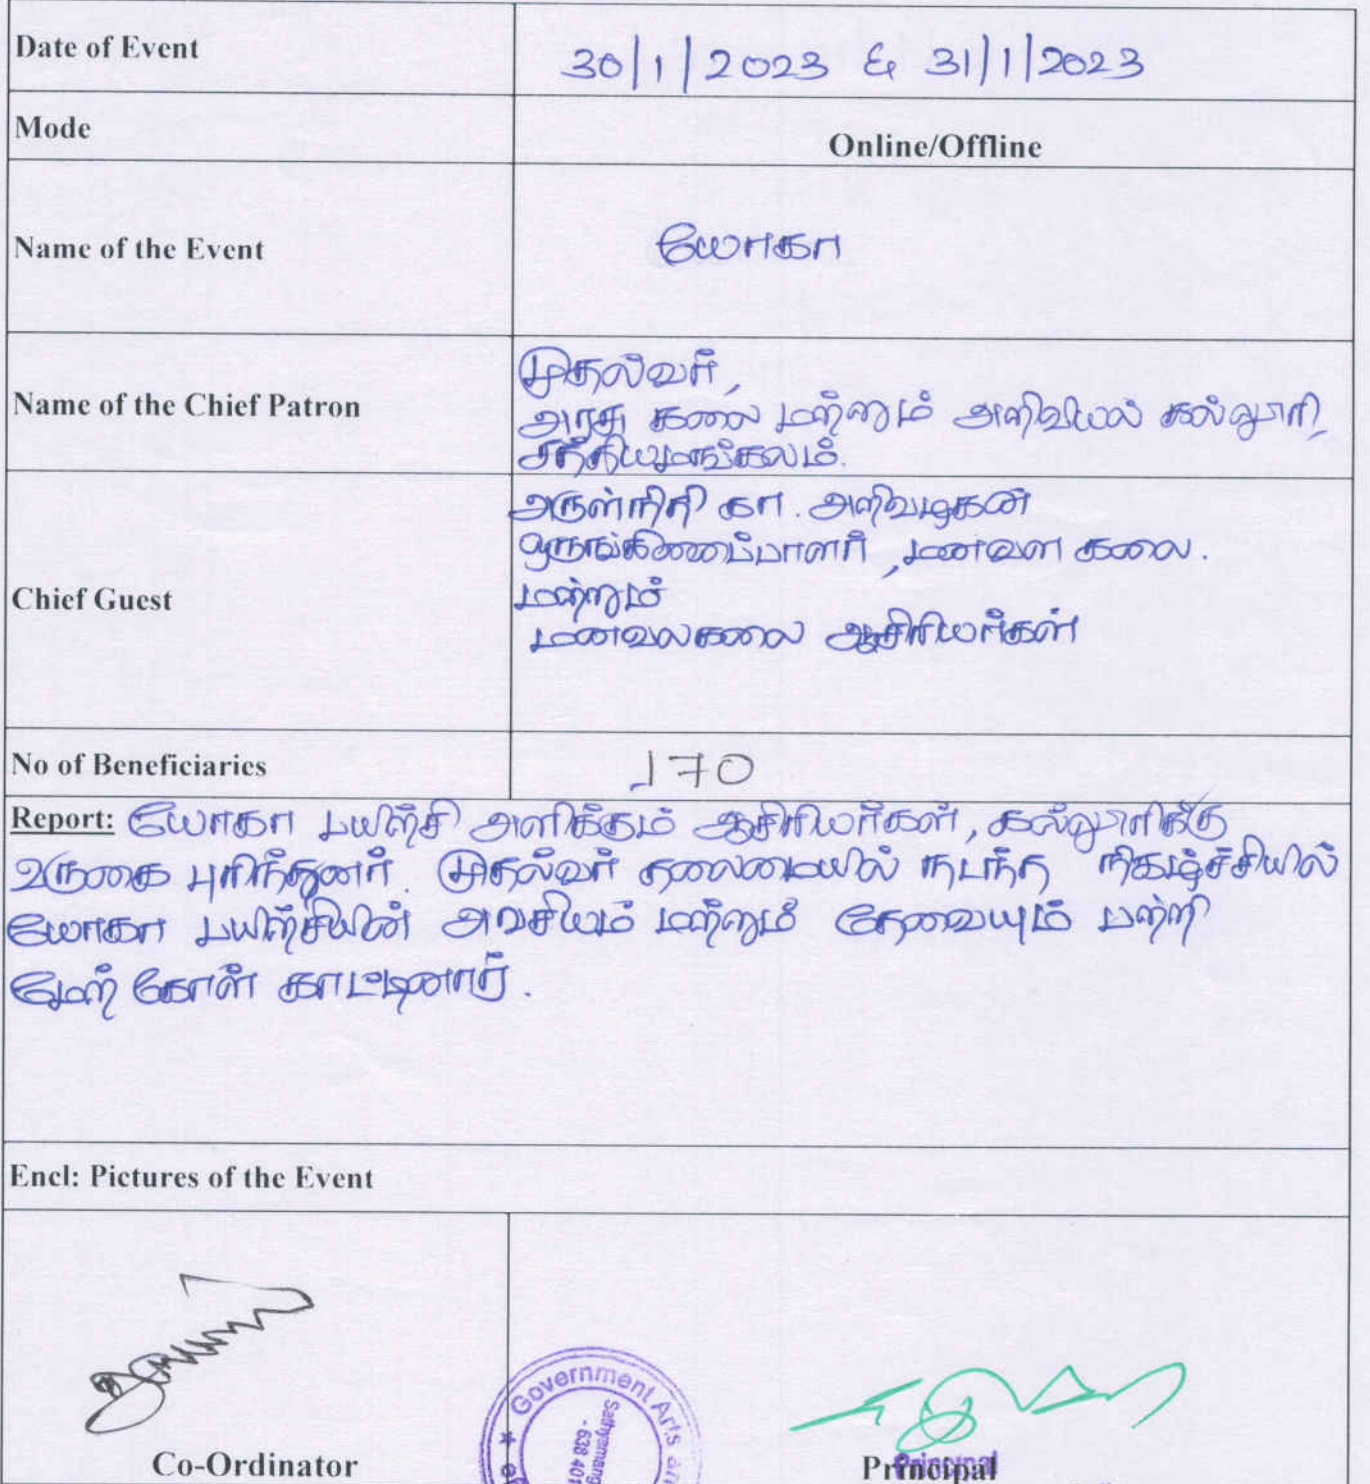 Date of Event 30/1/2023 & 31/1/2023
Mode Online/Offline
Name of the Event யோகா
Name of the Chief Patron
முதல்வர்,
அரசு கலை மற்றும் அறிவியல் கல்லூரி,
சத்தியமங்கலம்.
Chief Guest
அருள்நிதி கா. அறிவழகன்
ஒருங்கிணைப்பாளர், மனவள கலை.
மற்றும்
மனவலகலை ஆசிரியர்கள்
No of Beneficiaries 170
Report: யோகா பயிற்சி அளிக்கும் ஆசிரியர்கள், கல்லூரிக்கு
வருகை புரிந்தனர். முதல்வர் தலைமையில் நடந்த நிகழ்ச்சியில்
யோகா பயிற்சியின் அவசியம் மற்றும் தேவையும் பற்றி
மேற் கோள் காட்டினார்.
Encl: Pictures of the Event
Government Arts an
Sathyamang
- 638 401
Co-Ordinator
Principal
Principal